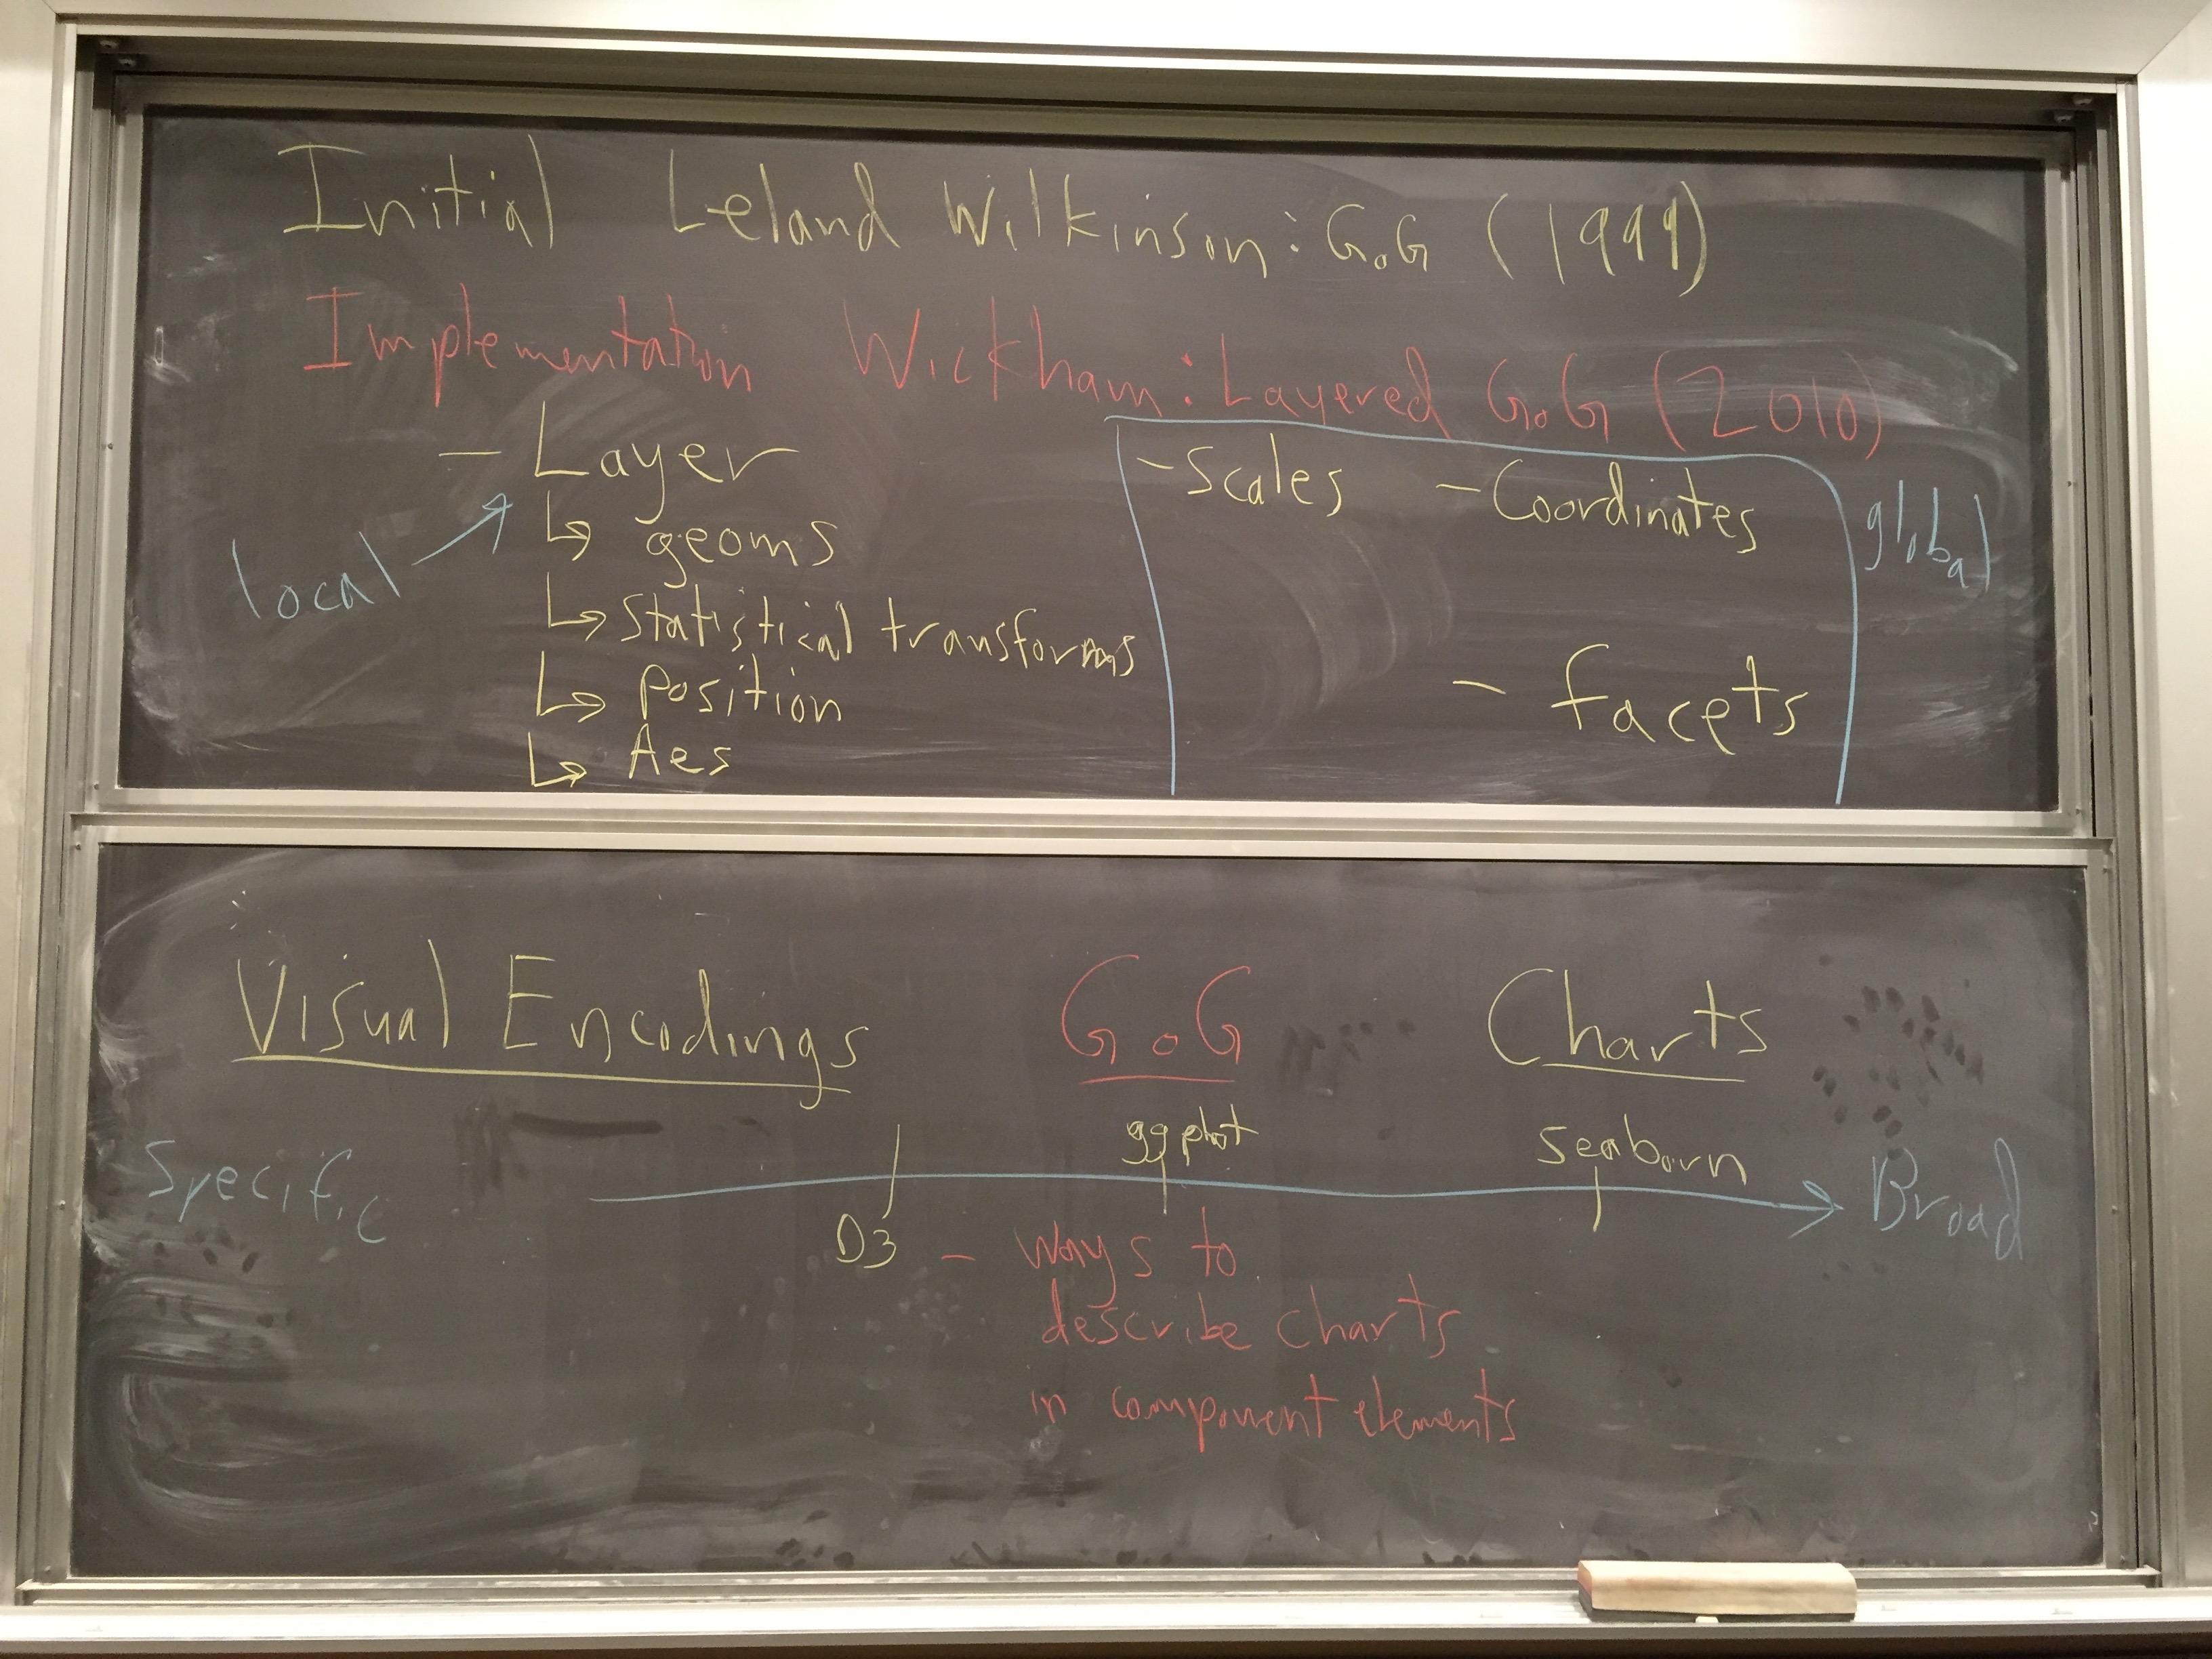 Initial Leland Wilkinson: GoG (1999)
Implementation Wickham: Layered GoG (2010)
- Layer
↳ geoms
↳ statistical transforms
↳ position
↳ Aes
local
- Scales - Coordinates
- facets
global
Visual Encodings GoG Charts
Specific
D3
ggplot
seaborn
Broad
- ways to
describe charts
in component elements